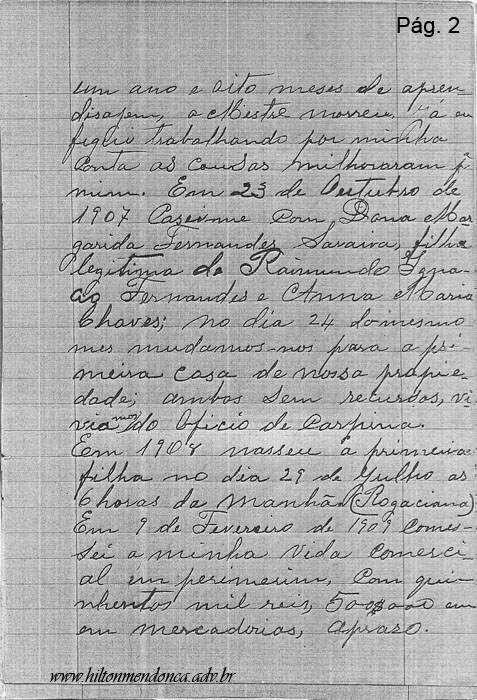 Pág. 2
um ano e oito meses de apren
disagem, o Mestre morreu, já eu
fiquei trabalhando por minha
Conta as cousas milhoraram p
mim. Em 23 de Outubro de
1907 Cazei-me Com Dona Mar
garida Fernandes Saraiva, filha
legitima de Raimundo Igna-
cio Fernandes e Anna Maria
Chaves; no dia 24 do mesmo
mes mudamos-nos para a pri-
meira casa de nossa propie-
dade; ambos sem recursos, vi-
viamos do Oficio de Carpina.
Em 1908 nasseu a primeira
filha no dia 29 de Julho as
horas da manhãn (Rogaciana)
Em 9 de Fevereiro de 1909 Comes-
sei a minha vida Comerci-
al em perimerim, Com quin
nhentos mil reis, 500$000 em
em mercadorias, aprazo.
www.hiltonmendonca.adv.br